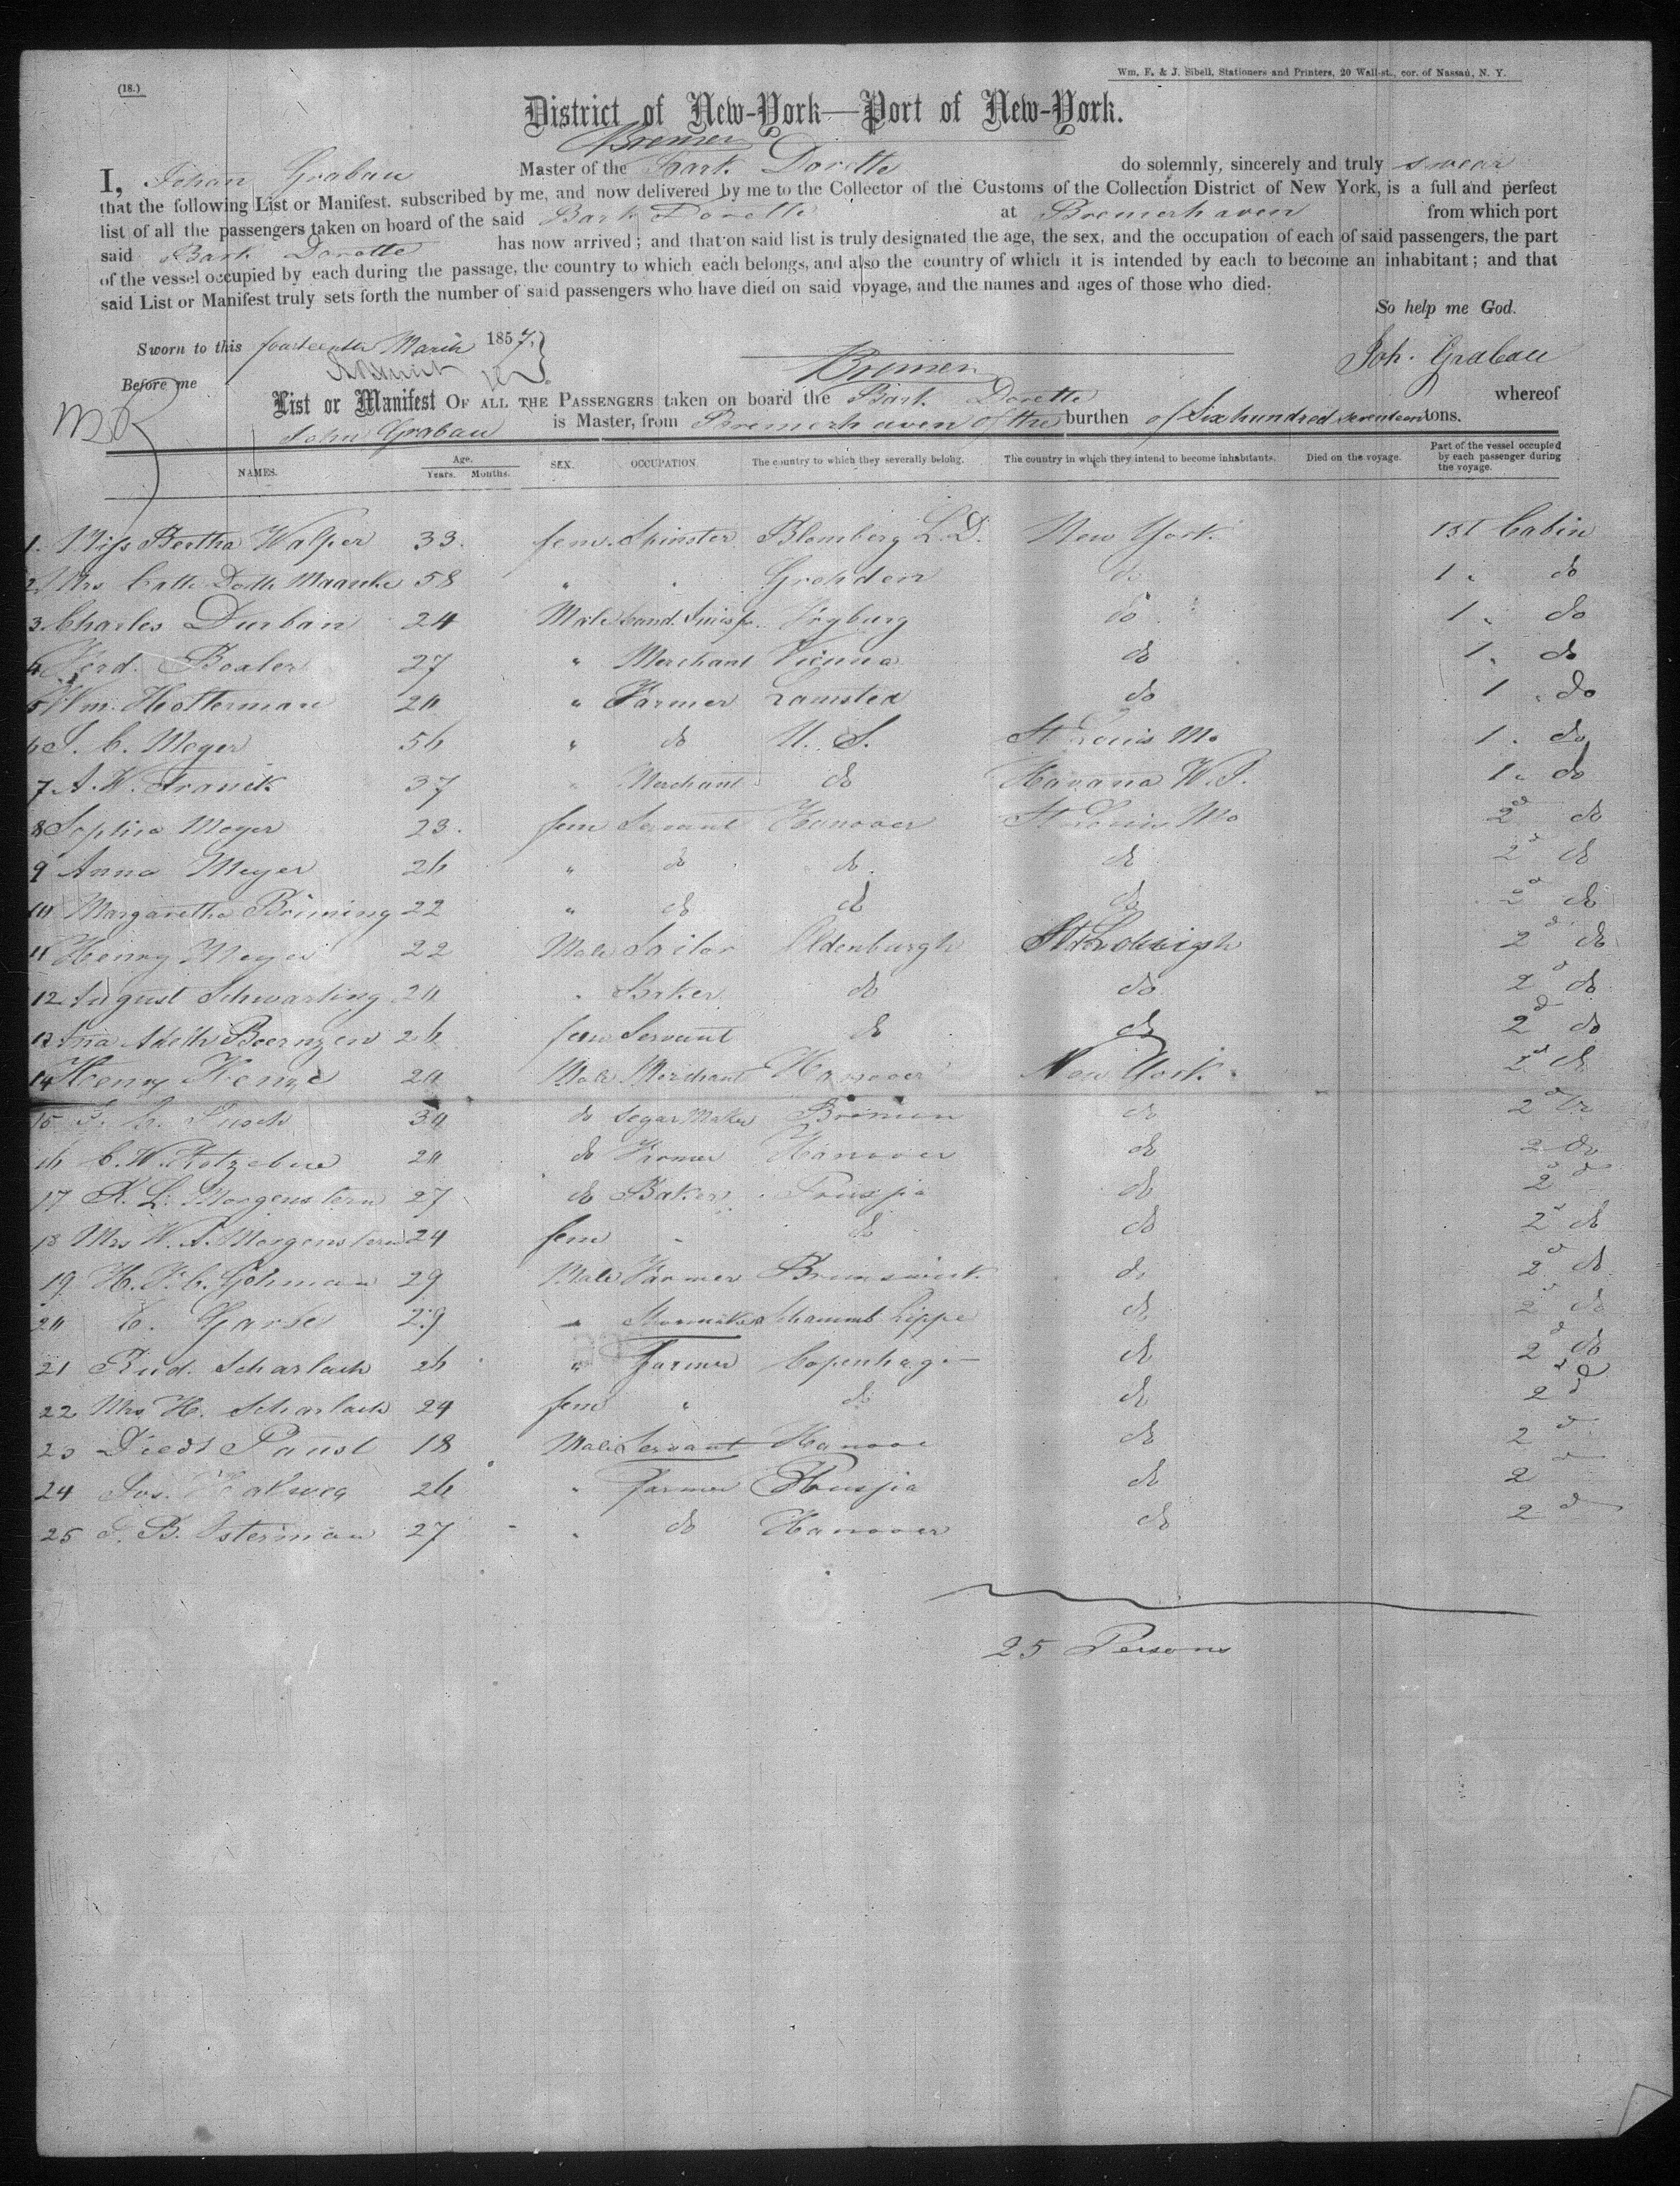 (18.)
Wm. F. & J. Sibell, Stationers and Printers, 20 Wall-st., cor. of Nassau, N. Y.
District of New-York—Port of New-York.
Bremen
I, Johan Grabau Master of the Bark Dorette do solemnly, sincerely and truly swear
that the following List or Manifest, subscribed by me, and now delivered by me to the Collector of the Customs of the Collection District of New York, is a full and perfect
list of all the passengers taken on board of the said Bark Dorette at Bremerhaven from which port
said Bark Dorette has now arrived; and that on said list is truly designated the age, the sex, and the occupation of each of said passengers, the part
of the vessel occupied by each during the passage, the country to which each belongs, and also the country of which it is intended by each to become an inhabitant; and that
said List or Manifest truly sets forth the number of said passengers who have died on said voyage, and the names and ages of those who died.
So help me God.
Sworn to this fourteenth March 1857,
Joh. Grabau
Before me
Bremen
List or Manifest OF ALL THE PASSENGERS taken on board the Bark Dorette whereof
John Grabau is Master, from Bremerhaven of the burthen of Six hundred seventeen tons.
NAMES. Age. Years. Months. SEX. OCCUPATION. The country to which they severally belong. The country in which they intend to become inhabitants. Died on the voyage. Part of the vessel occupied by each passenger during the voyage.
1. Miss Bertha Walper 33. fem. Spinster Blomberg L. D. New York 1st Cabin
2 Mrs Cath Doth Maanke 58 " " Grohden do 1 " do
3 Charles Durban 24 Male Cand. Fryburg do 1 " do
4 Ferd. Boxler 27 " Merchant Vienna do 1 " do
5 Wm. Holterman 20 " Farmer Lamsted do 1 " do
6 J. C. Meyer 56 " do U. S. St Louis Mo 1 " do
7 A. W. Franck 37 " Merchant do Havana W. I. 1 " do
8 Sophia Meyer 23. fem Servant Hanover St Louis Mo 2d do
9 Anna Meyer 26 " do do do 2d do
10 Margaretha Brüning 22 " do do do 2d do
11 Henry Meyer 22 Male Sailor Oldenburgh 2d do
12 August Schwarting 20 " Baker do do 2d do
13 Ana Adelh Boernzen 26 fem Servant do do 2d do
14 Henry Henze 20 Male Merchant Hanover New York 2d do
15 30 do Segar Maker Bremen do 2d do
16 C. W. Kotzebue 20 do Farmer Hanover do 2 do
17 K. L. Morgenstern 27 do Baker Prussia do 2d
18 Mrs W. A. Morgenstern 24 fem " do do 2d do
19 H. F. C. Gohman 29 Male Farmer Brunswick do 2d do
20 C. Garbe 29 " Schaumb Lippe do 2d do
21 Rud. Scharlach 26 " Farmer Copenhage do 2d do
22 Mrs H. Scharlach 24 fem " do do 2d
23 Diedr Paust 18 Male Servant Hanove do 2d
24 Jos. 26 " Farmer Prussia do 2d
25 Osterman 27 " do Hanover do 2d
25 Persons